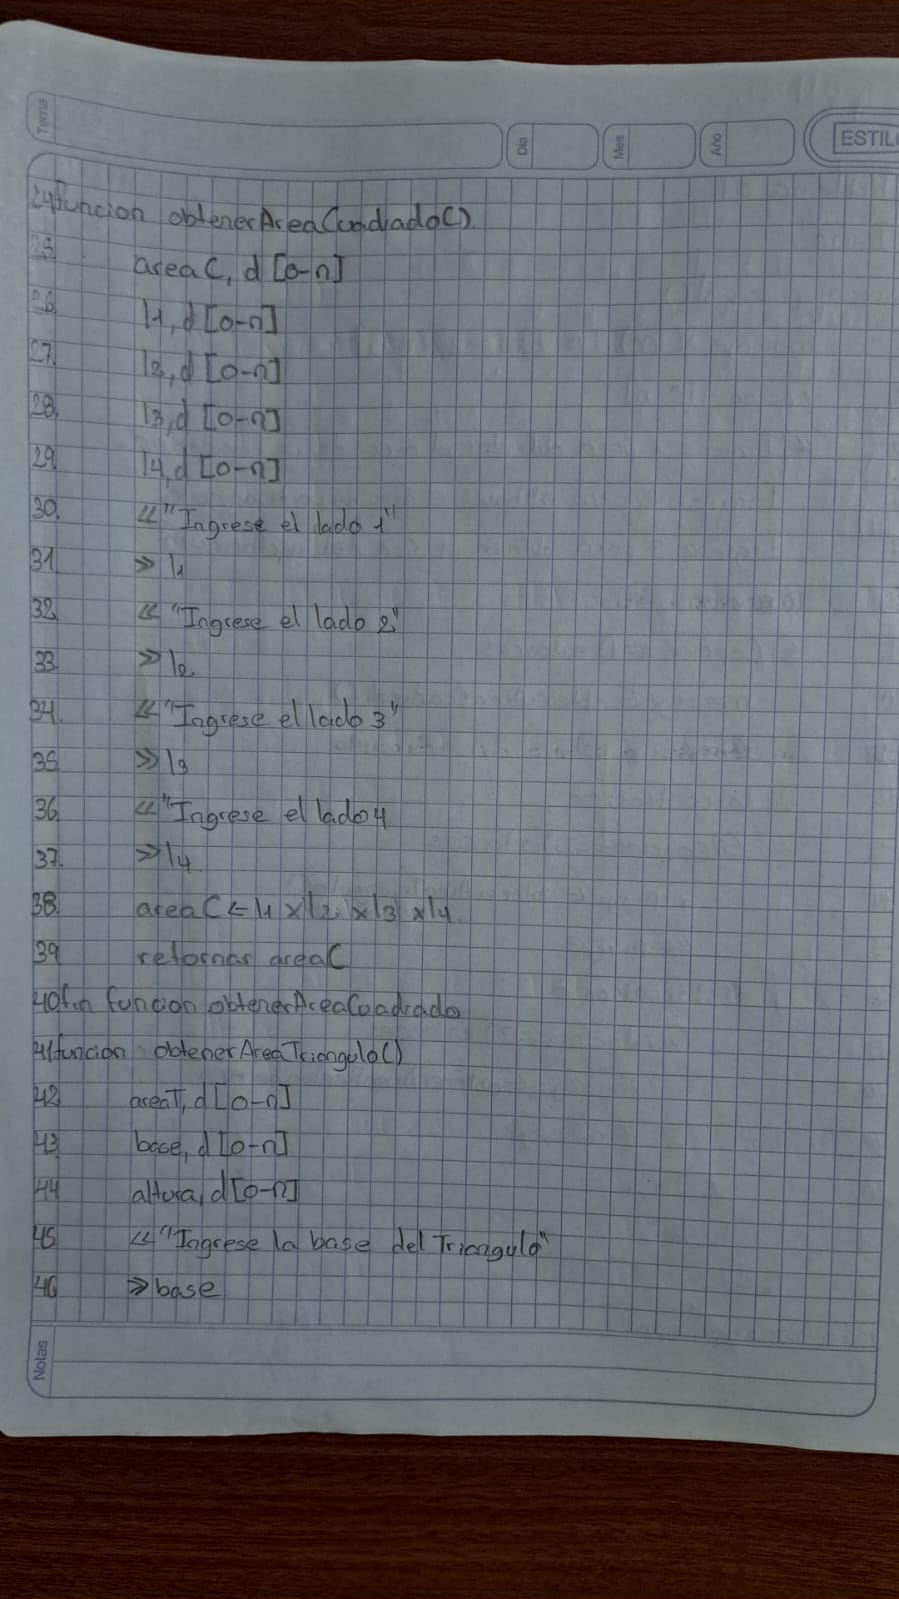 Tema
Dia
Mes
Año
ESTILO
24 funcion obtenerAreaCuadrado()
25. areaC, d [0-n]
26. l1, d [0-n]
27. l2, d [0-n]
28. l3, d [0-n]
29. l4, d [0-n]
30. << "Ingrese el lado 1"
31 >> l1
32. << "Ingrese el lado 2"
33. >> l2
34. << "Ingrese el lado 3"
35 >> l3
36 << "Ingrese el lado 4
37. >> l4
38. areaC ← l1 x l2 x l3 x l4
39 retornar areaC
40 fin funcion obtenerAreaCuadrado
41 funcion obtenerAreaTriangulo()
42 areaT, d [0-n]
43 base, d [0-n]
44 altura, d [0-n]
45 << "Ingrese la base del Triangulo"
46 >> base
Notas